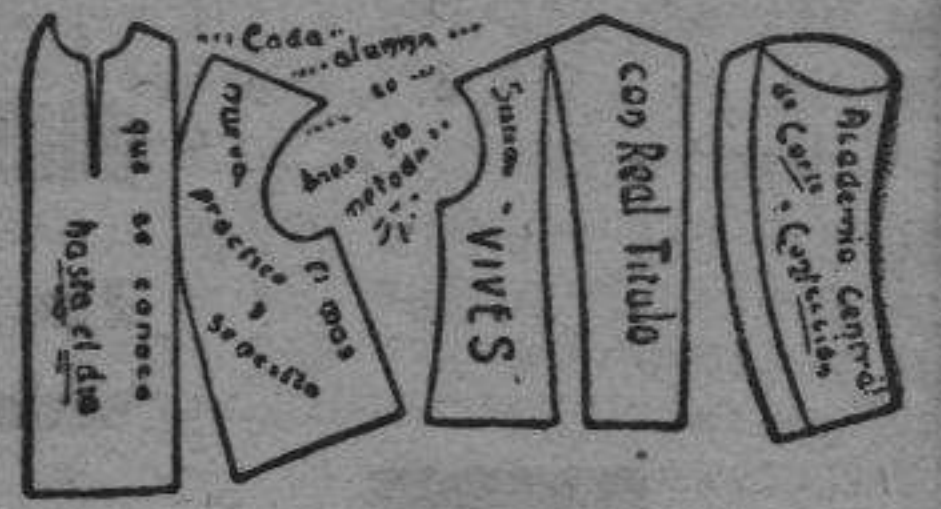 Academia Central
de Corte y Confección
con Real Titulo
Sistema · VIVES
... Cada ...
.... alumna ...
.... se ...
.... hace su
metodo ..
El mas
nuevo
practico
y
Sencillo
que se conoce
hasta el dia